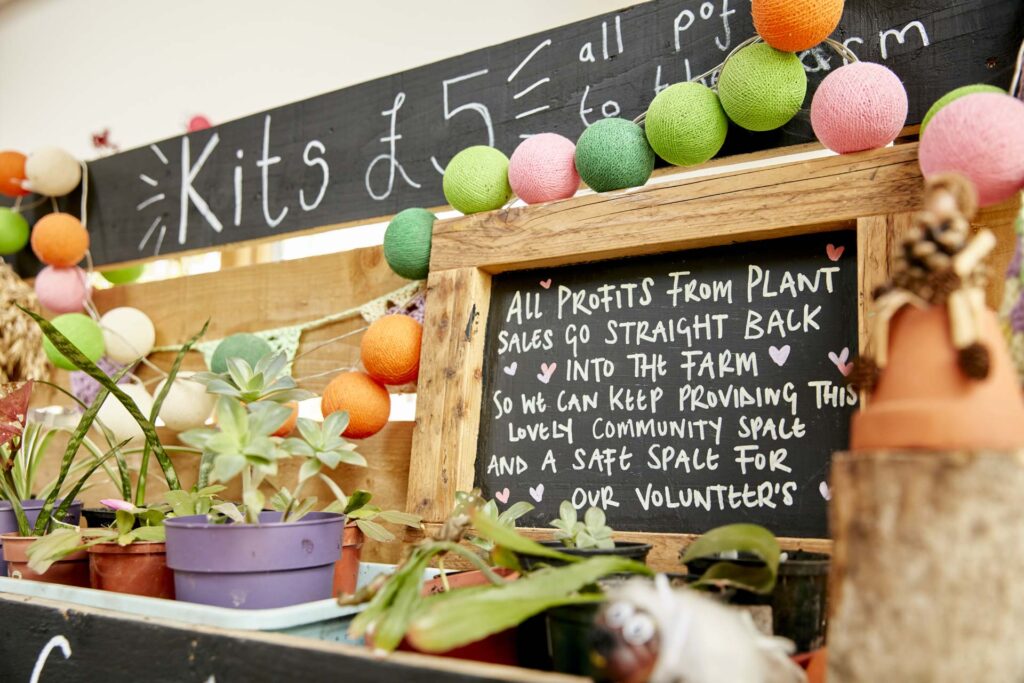 Kits £5
all pof
to the farm
All Profits from Plant
Sales go straight back
into the farm
So we can keep providing this
lovely community space
and a safe space for
our volunteer's